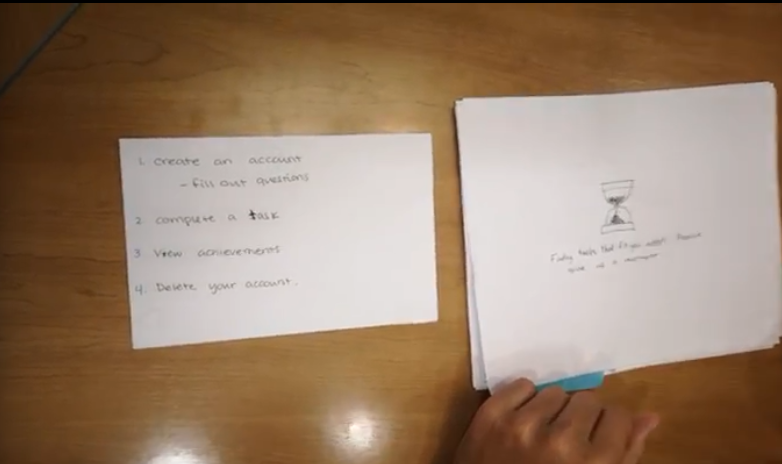 1. Create an account
- fill out questions
2 complete a task
3 View achievements
4. Delete your account.
tasks that fit you
give us a moment